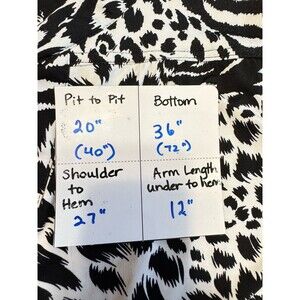 Pit to Pit
20"
(40")
Bottom
36"
(72")
Shoulder
to
Hem
27"
Arm Length
under to hem
12"